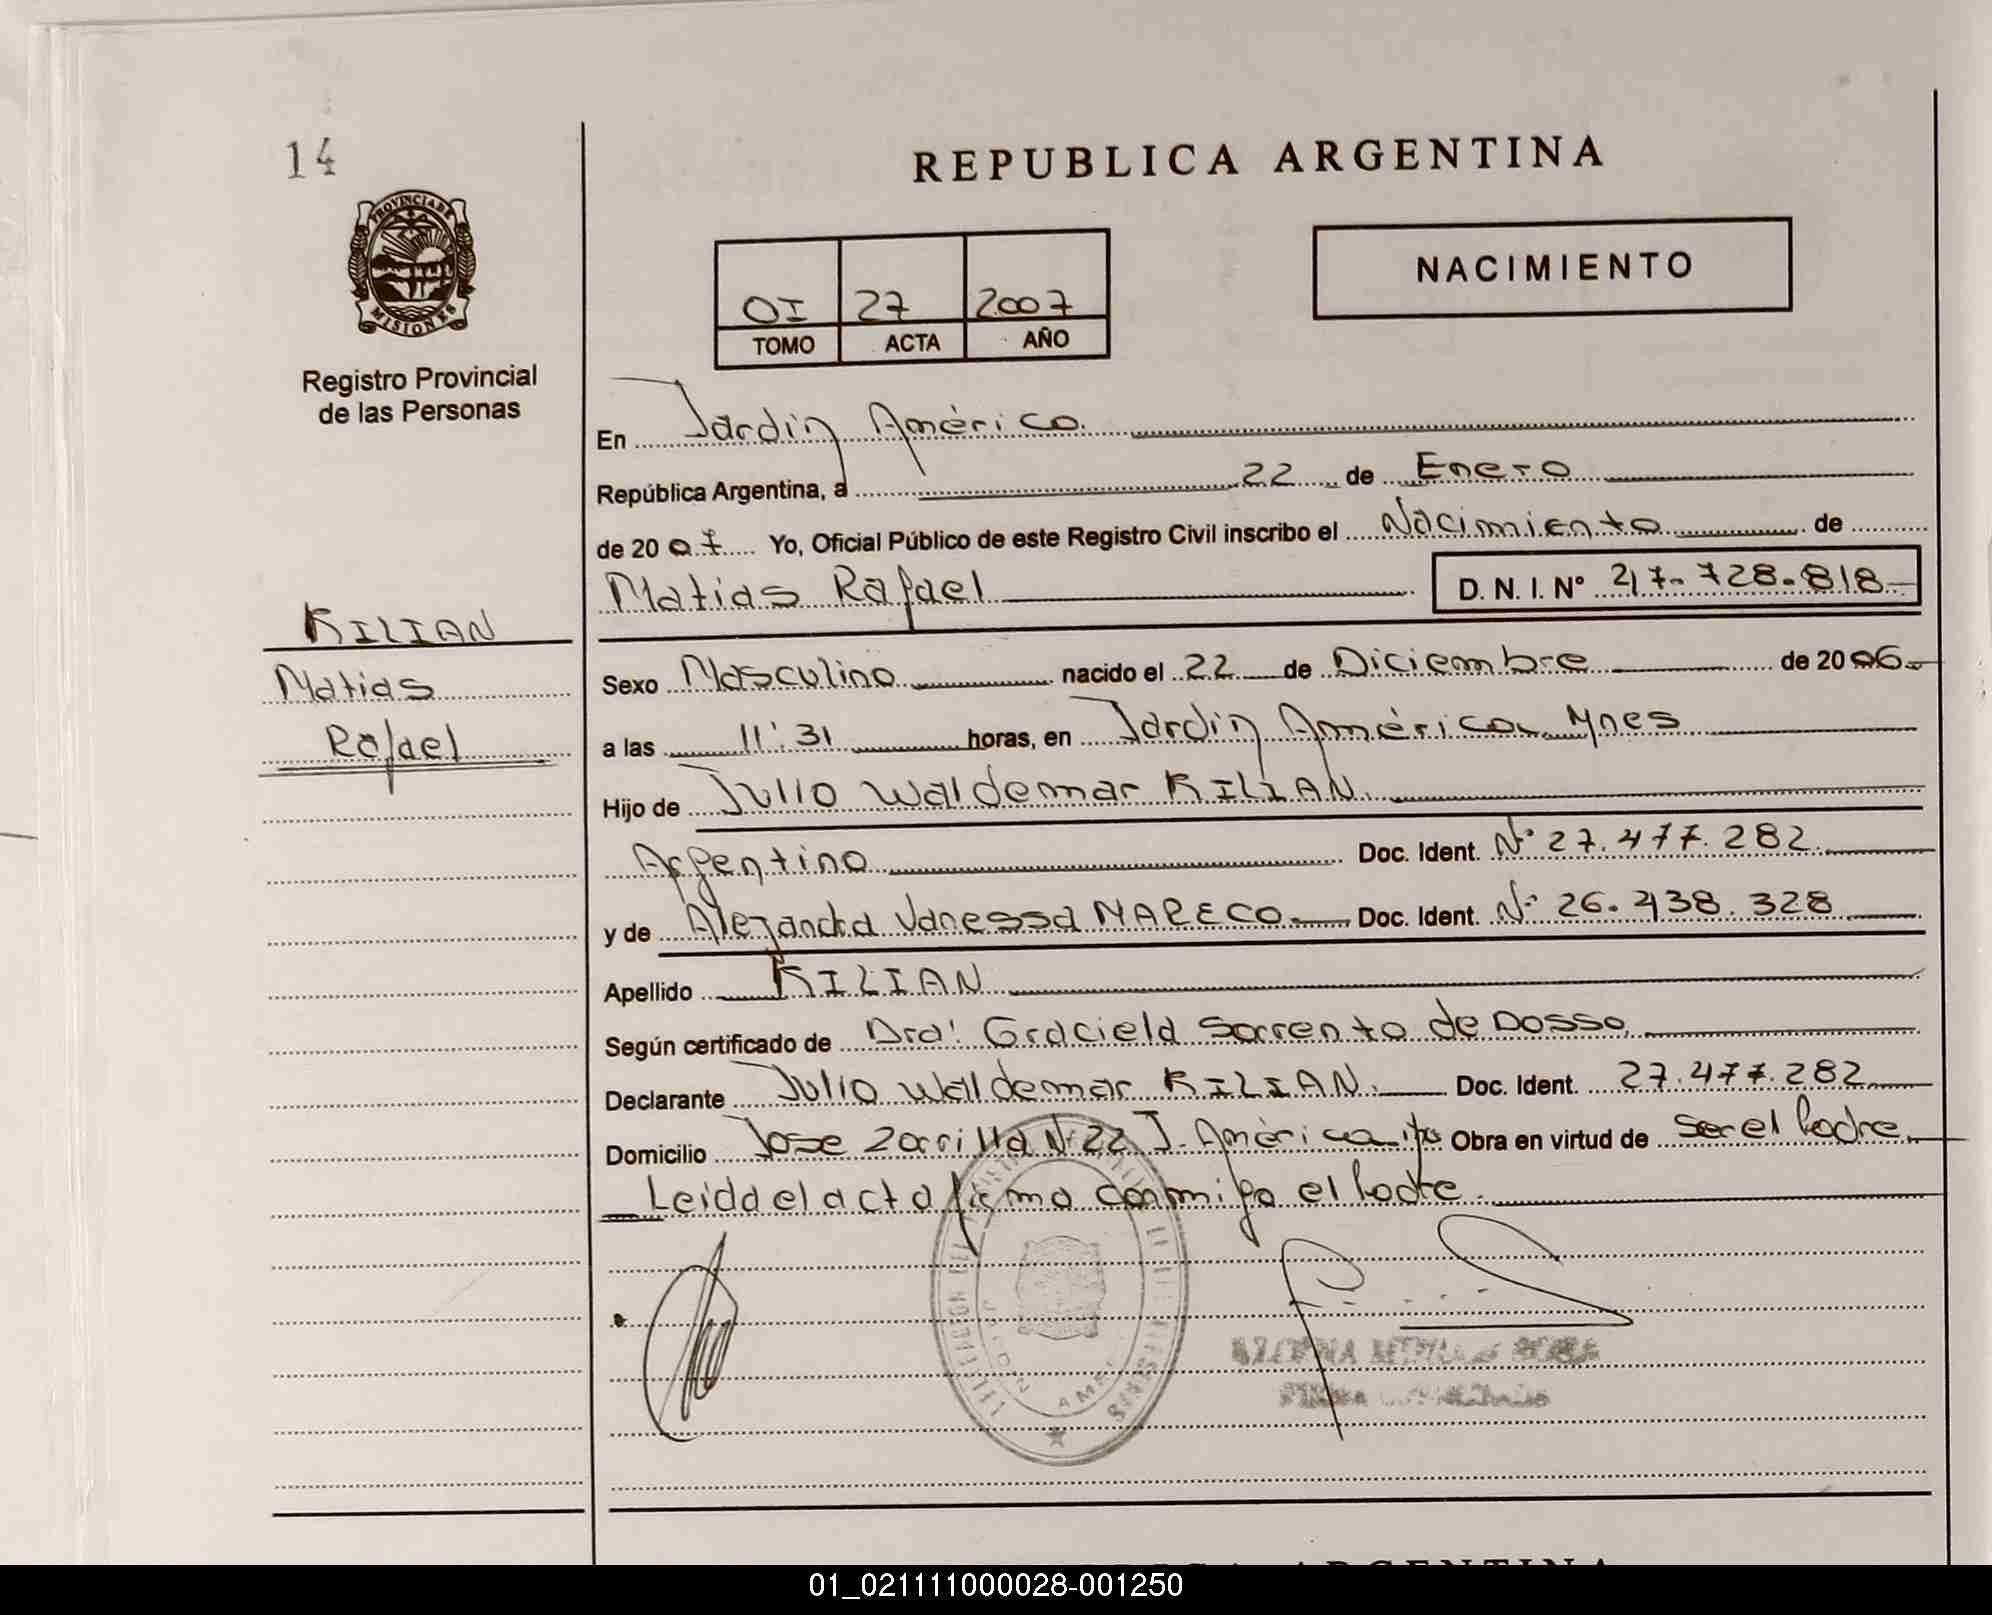 14
REPUBLICA ARGENTINA
PROVINCIA DE
MISIONES
Registro Provincial
de las Personas
OI 27 2007
TOMO ACTA AÑO
NACIMIENTO
En Jardin América.
República Argentina, a 22 de Enero
de 2007 Yo, Oficial Público de este Registro Civil inscribo el Nacimiento de
Matias Rafael D. N. I. Nº 47.728.818
KILIAN
Matias
Rafael
Sexo Masculino nacido el 22 de Diciembre de 2006.
a las 11:31 horas, en Jardin América Mnes
Hijo de Julio Waldemar KILIAN
Argentino Doc. Ident. Nº 27.477.282
y de Alejandra Vanessa MARECO Doc. Ident. Nº 26.438.328
Apellido KILIAN
Según certificado de Dra: Graciela Sorrento de Dosso
Declarante Julio Waldemar KILIAN. Doc. Ident. 27.477.282
Domicilio Jose Zorrilla Nº 22 J. América Obra en virtud de ser el Padre
Leida el acta firma conmigo el Padre.
01_021111000028-001250